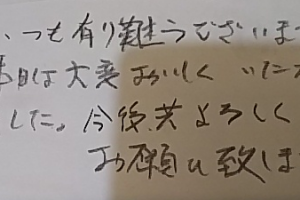 いつも有り難うございま
本日は大変おいしく いただ
した。今後共よろしく
お願い致しま